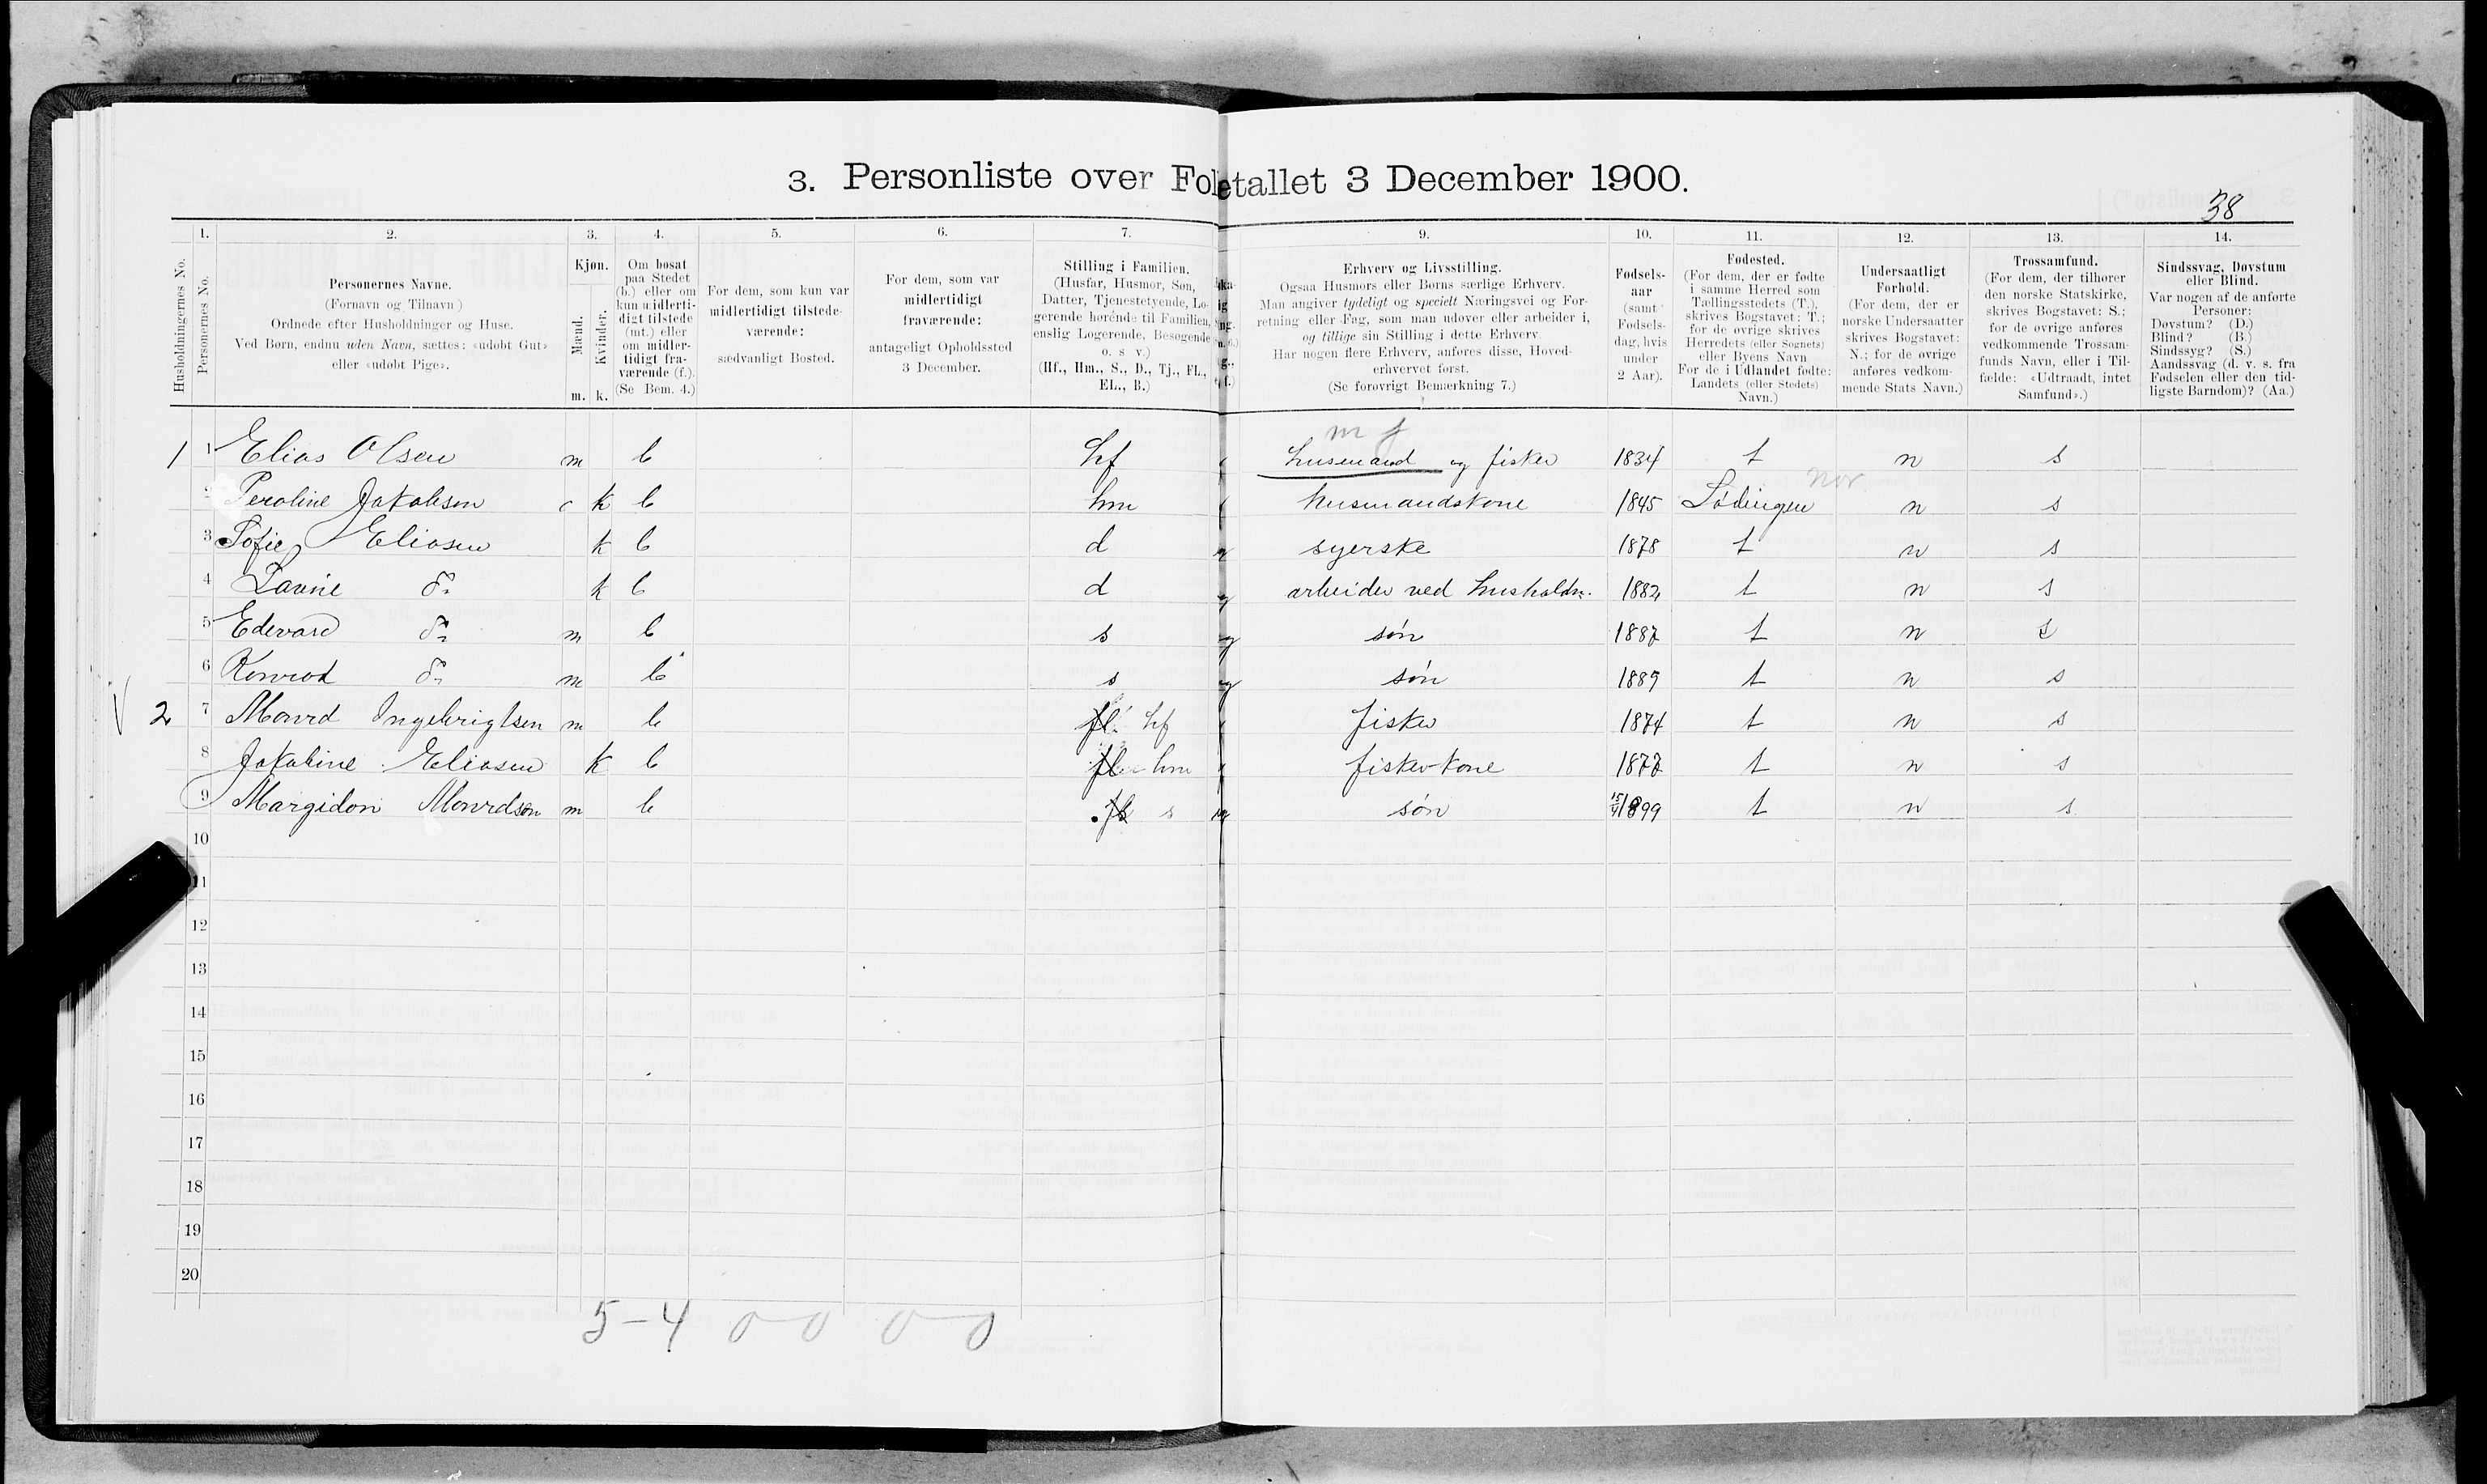 3. Personliste over Folketallet 3 December 1900.
38
1. 2. 3. 4. 5. 6. 7. 9. 10. 11. 12. 13. 14.
Husholdningernes No.
Personernes No.
Personernes Navne.
(Fornavn og Tilnavn)
Ordnede efter Husholdninger og Huse.
Ved Børn, endnu uden Navn, sættes: «udøbt Gut»
eller «udøbt Pige».
Kjøn.
Mænd.
Kvinder.
m. k.
Om bosat
paa Stedet
(b.) eller om
kun midlerti-
digt tilstede
(mt.) eller
om midler-
tidigt fra-
værende (f.).
(Se Bem. 4.)
For dem, som kun var
midlertidigt tilstede-
værende:
sædvanligt Bosted.
For dem, som var
midlertidigt
fraværende:
antageligt Opholdssted
3 December.
Stilling i Familien.
(Husfar, Husmor, Søn,
Datter, Tjenestetyende, Lo-
gerende hørende til Familien,
enslig Logerende, Besøgende
o. s v.)
(Hf., Hm., S., D., Tj., FL.,
EL., B.)
Erhverv og Livsstilling.
Ogsaa Husmors eller Børns særlige Erhverv.
Man angiver tydeligt og specielt Næringsvei og For-
retning eller Fag, som man udøver eller arbeider i,
og tillige sin Stilling i dette Erhverv
Har nogen flere Erhverv, anføres disse, Hoved-
erhvervet først.
(Se forøvrigt Bemærkning 7.)
Fødsels-
aar
(samt
Fødsels-
dag, hvis
under
2 Aar).
Fødested.
(For dem, der er fødte
i samme Herred som
Tællingsstedets (T.),
skrives Bogstavet: T.;
for de øvrige skrives
Herredets (eller Sognets)
eller Byens Navn
For de i Udlandet fødte:
Landets (eller Stedets)
Navn.)
Undersaatligt
Forhold.
(For dem, der er
norske Undersaatter
skrives Bogstavet:
N.; for de øvrige
anføres vedkom-
mende Stats Navn.)
Trossamfund.
(For dem, der tilhører
den norske Statskirke,
skrives Bogstavet: S.;
for de øvrige anføres
vedkommende Trossam-
funds Navn, eller i Til-
fælde: «Udtraadt, intet
Samfund».)
Sindssvag, Døvstum
eller Blind.
Var nogen af de anførte
Personer:
Døvstum? (D.)
Blind? (B.)
Sindssyg? (S.)
Aandssvag (d. v. s. fra
Fødselen eller den tid-
ligste Barndom)? (Aa.)
m f
1 1 Elias Olsen m b hf husmand og fisker 1834 t n s
nor
2 Peroline Jakobsen k b hm husmandskone 1845 Lødingen n s
3 Sofie Eliasen k b d syerske 1878 t n s
4 Lavine do k b d arbeider ved husholdn. 1882 t n s
5 Edevard do m b s søn 1887 t n s
6 Konrad do m b s søn 1889 t n s
2 7 Monrd Ingebrigtsen m b fl hf fisker 1874 t n s
8 Jakobine Eliasen k b fl hm fiskerkone 1877 t n s
9 Margidon Monrdsøn m b s søn 15/4 1899 t n s
10
11
12
13
14
15
16
17
18
19
20
5-4 0 0 0 0